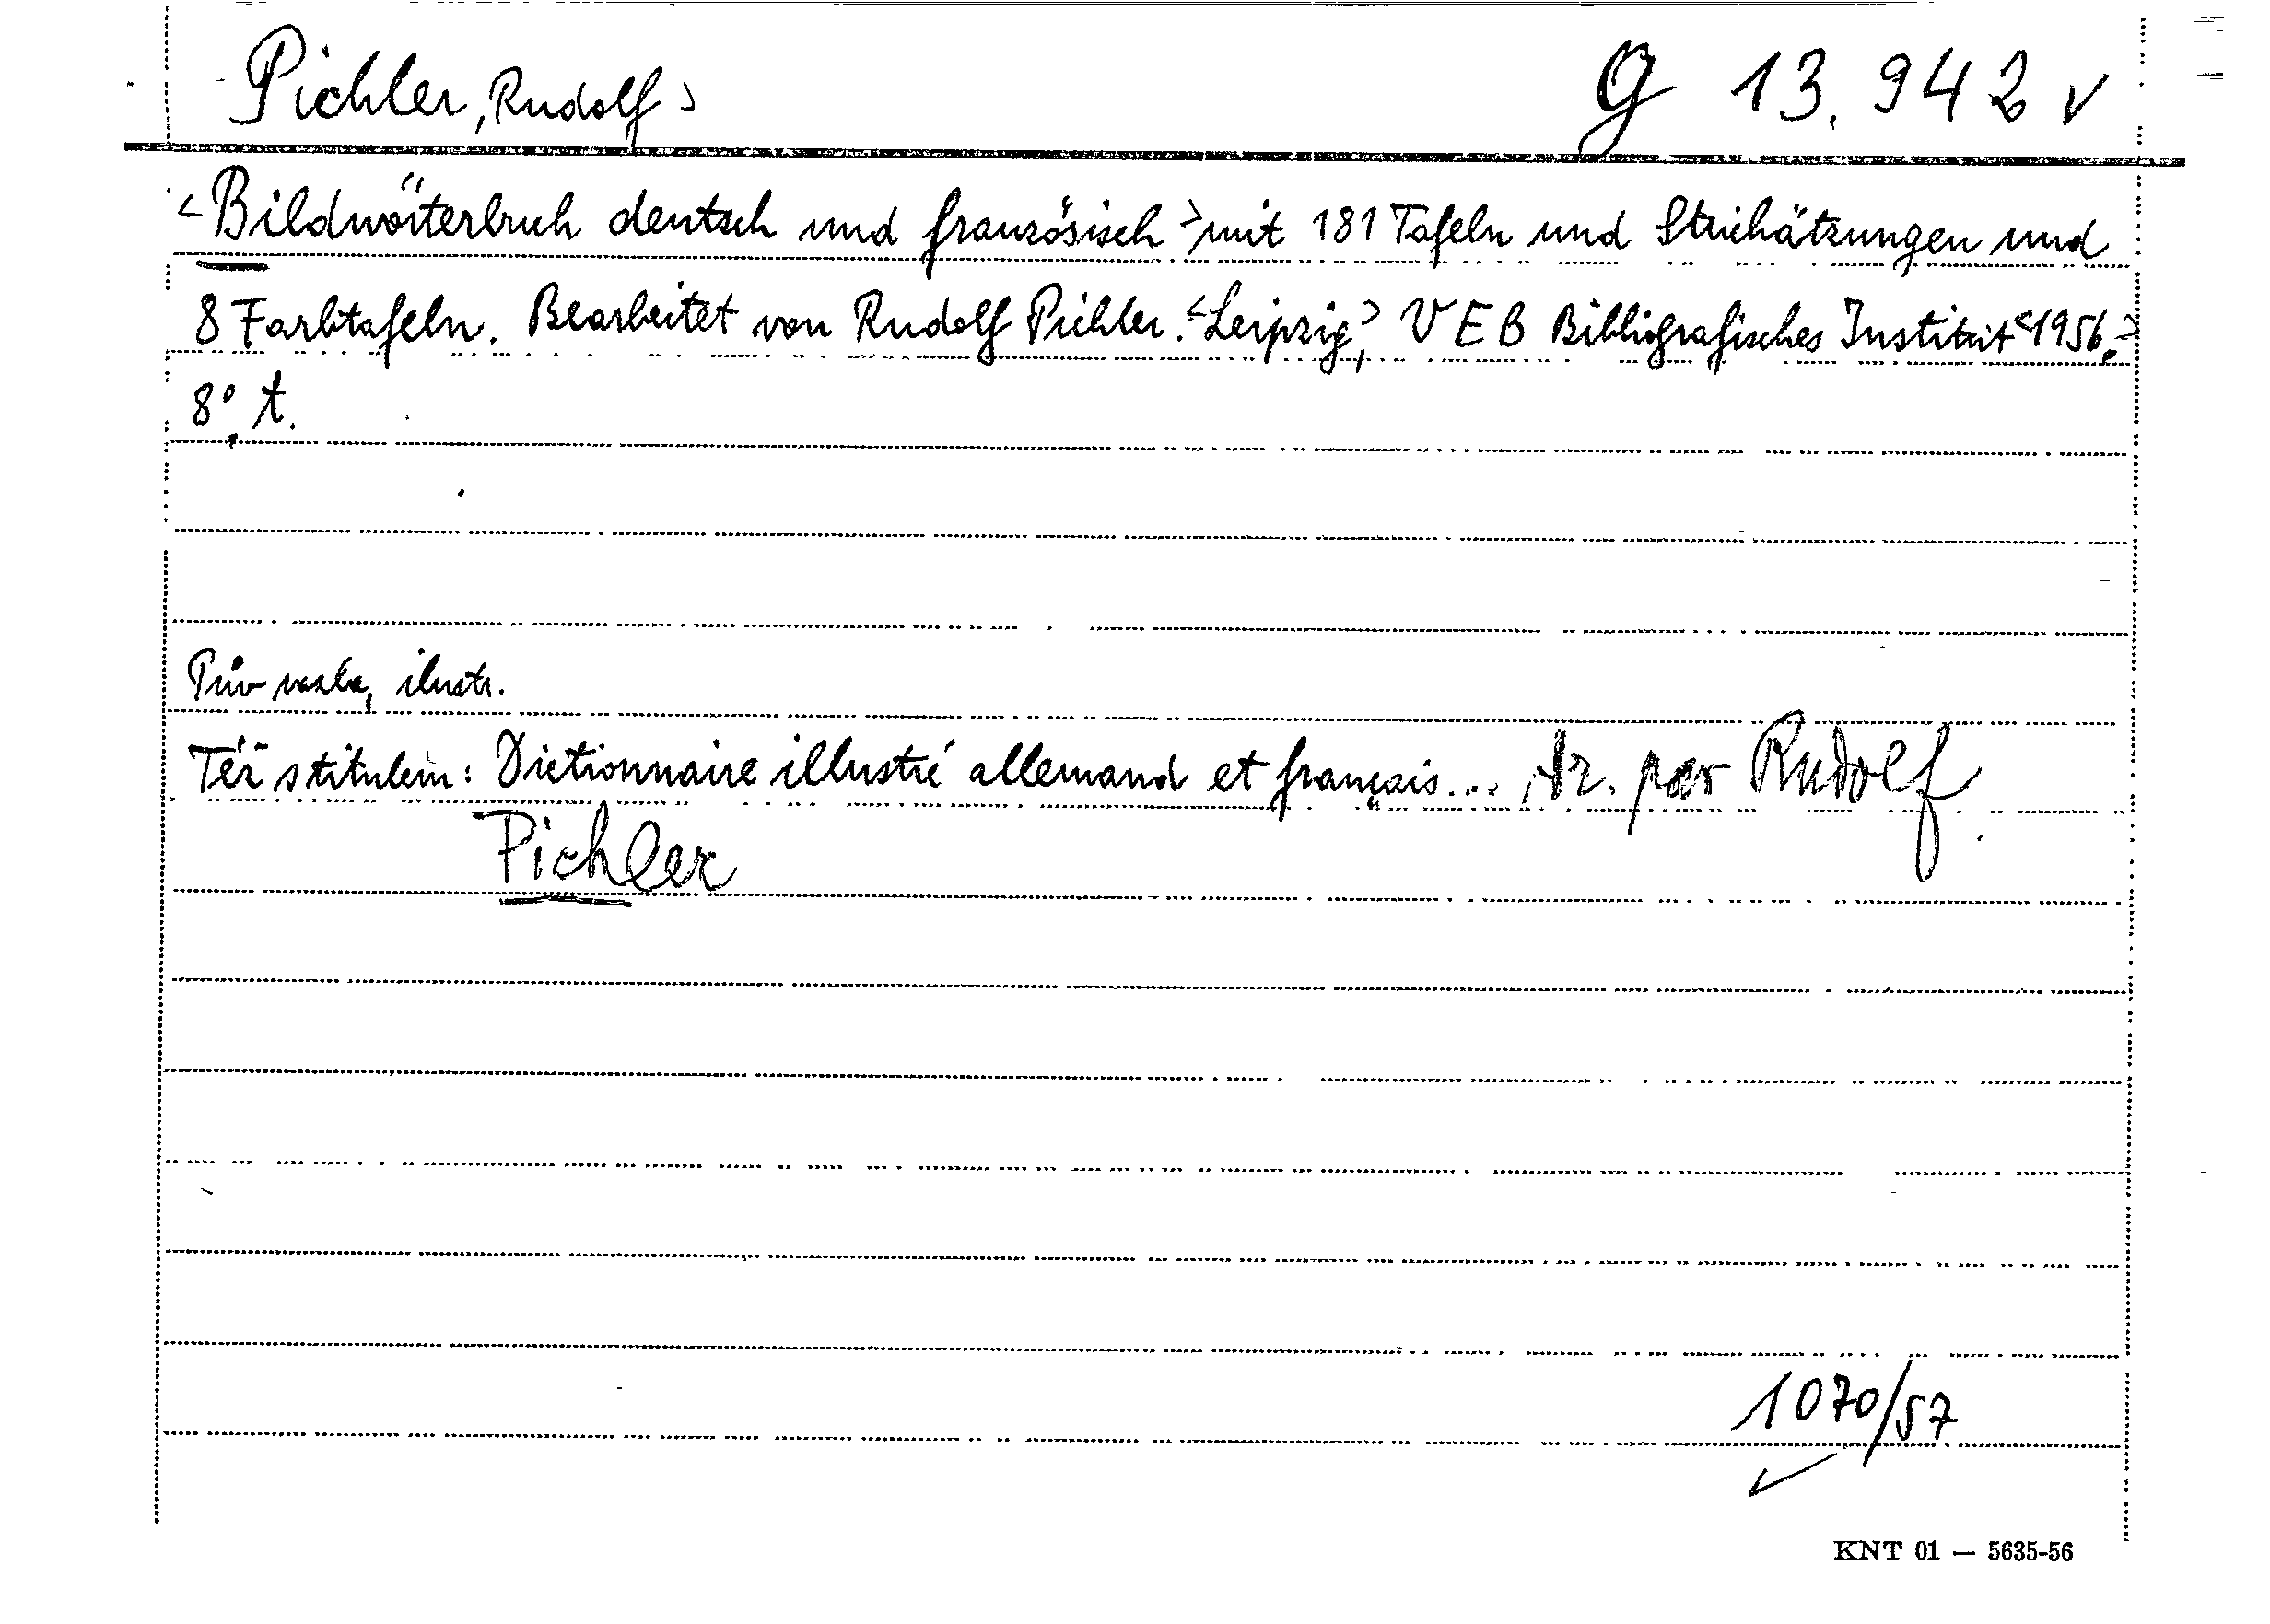 Pichler, Rudolf > G 13.942 v
<Bildwörterbuch deutsch und französisch> mit 181 Tafeln und Strichätzungen und
8 Farbtafeln. Bearbeitet von Rudolf Pichler. <Leipzig,> VEB Bibliografisches Institut <1956.>
8°. t.
Pův vazba, ilustr.
Též s titulem: Dictionnaire illustré allemand et français... par Rudolf
Pichler
1070/57
KNT 01 — 5635-56